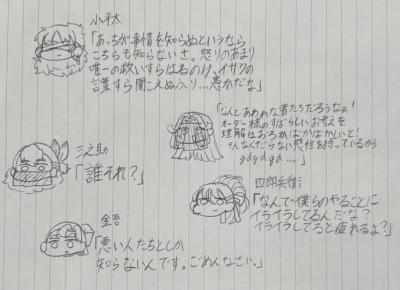 小平太
「あっちが事情を知らぬというなら
こちらも知らないさ。怒りのあまり
唯一の救いすらはねのけ、イサクの
言葉すら聞こえぬふり…愚かだな」
「なんとあわれな者たちだろうなの!
オーダー様のすばらしいお考えを
理解はおろかばかばかしいと!
くだらない感性を持っているから
gdgdgd…」
三之助
「誰それ?」
四郎兵衛
「なんで僕らのやることに
イライラしてるんだな?
イライラしてると疲れるよ?」
金吾
「悪い人たちとしか
知らないんです。ごめんなさい。」